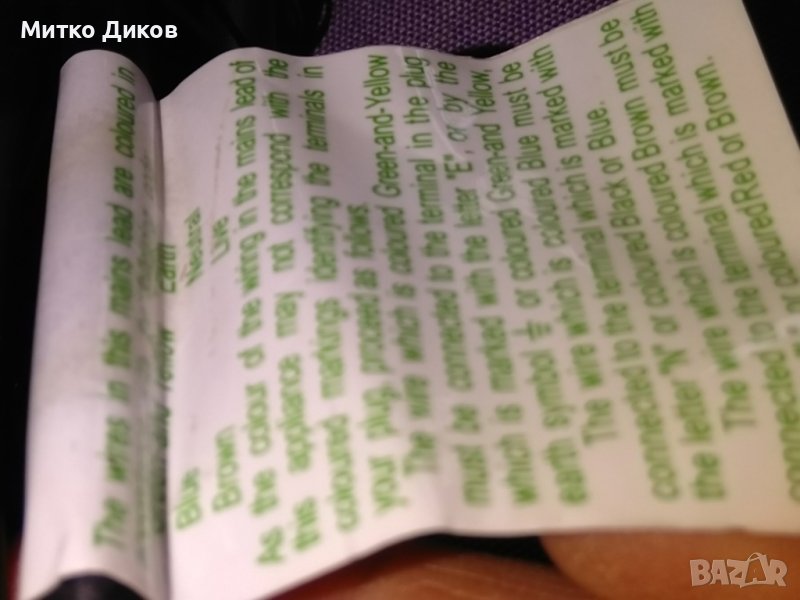 Митко Диков
The wires in this mains lead are coloured in
Yellow Earth
Blue Neutral
Brown Live
As the colour of the wiring in the mains lead of
this appliance may not correspond with the
coloured markings identifying the terminals in
your plug, proceed as follows:
The wire which is coloured Green-and-Yellow
must be connected to the terminal in the plug
which is marked with the letter "E", or by the
earth symbol ⏚ or coloured Green-and Yellow.
The wire which is coloured Blue must be
connected to the terminal which is marked with
the letter "N" or coloured Black or Blue.
The wire which is coloured Brown must be
connected to the terminal which is marked with
or coloured Red or Brown.
BAZAR